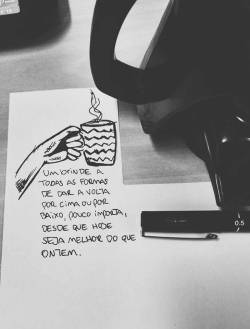 UM BRINDE A
TODAS AS FORMAS
DE DAR A VOLTA
POR CIMA OU POR
BAIXO, POUCO IMPORTA,
DESDE QUE HOJE
SEJA MELHOR DO QUE
ONTEM.
0.5